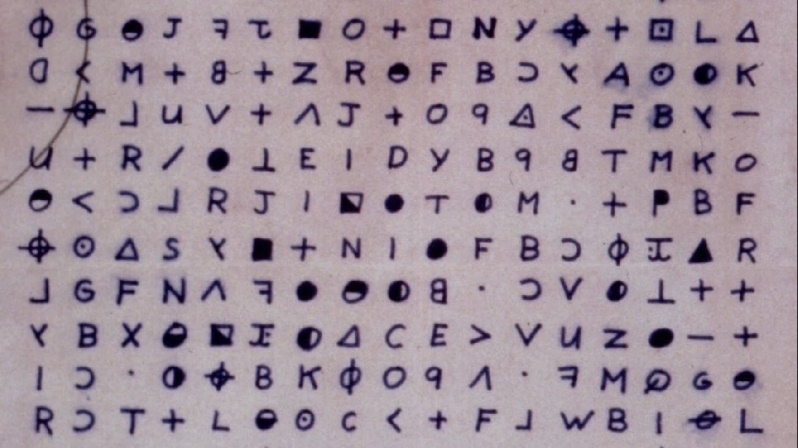 Φ G ◓ J ꟻ τ ■ O + □ N Y ⌖ + ⊡ L Δ
ᗡ < M + 8 + Z R ◓ F B Ɔ Y A ⊙ ◐ K
— ⌖ ⅃ U V + Λ J + O 9 ◬ < F B Y —
U + R / ● ⊥ E I D Y B 9 8 T M K O
◓ < Ɔ ⅃ R J I ◪ ● T ◐ M · + P B F
⌖ ⊙ Δ S Y ■ + N I ● F B Ɔ Φ I ▲ R
⅃ G F N Λ ꟻ ● ◓ ◐ 8 · Ɔ V ◐ ⊥ + +
Y B X ◓ ◪ I ◐ Δ C E > V U Z ● — +
I Ɔ · ◐ ⌖ B K Φ O 9 Λ · ꟻ M Q G ◓
R Ɔ T + L ◓ ⊙ C < + F ⅃ W B I ⊖ L